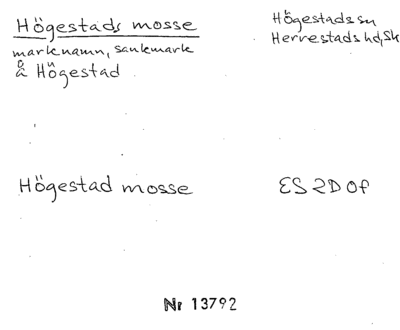 Högestads mosse
marknamn, sankmark
å Högestad
Högestads sn
Herrestads hd, Sk
Högestad mosse
ES 2D 0f
Nr 13792